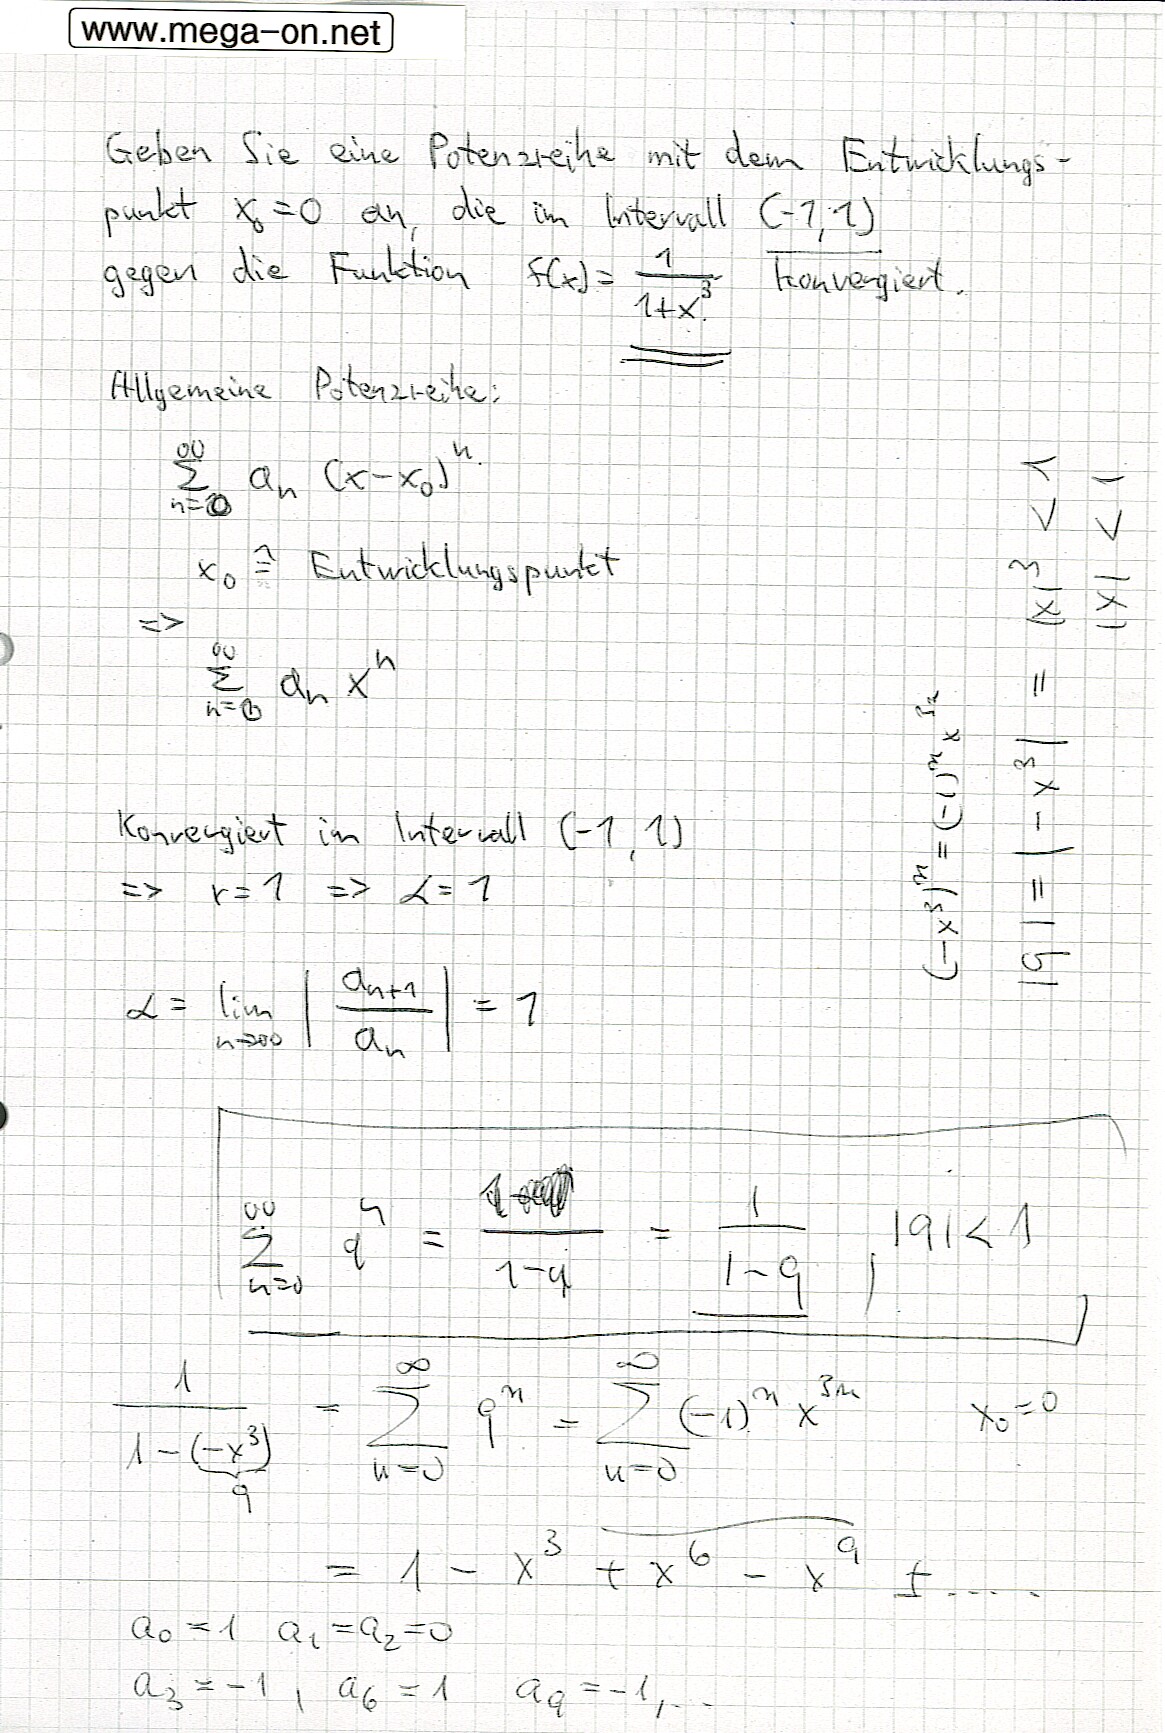 www.mega-on.net
Geben Sie eine Potenzreihe mit dem Entwicklungs-
punkt x₀=0 an, die im Intervall (-1,1)
gegen die Funktion f(x)= 1/(1+x³) konvergiert.
Allgemeine Potenzreihe:
∑_{n=0}^{∞} aₙ (x-x₀)ⁿ
x₀ ≙ Entwicklungspunkt
=>
∑_{n=0}^{∞} aₙ xⁿ
Konvergiert im Intervall (-1,1)
=> r=1 => α=1
α = lim_{n→∞} |aₙ₊₁/aₙ| = 1
(-x³)ⁿ = (-1)ⁿ x³ⁿ
|q| = |-x³| = |x|³ < 1
|x| < 1
∑_{n=0}^{∞} qⁿ = 1/(1-q) = 1/(1-q) , |q| < 1
1/(1-(-x³)) = ∑_{n=0}^{∞} qⁿ = ∑_{n=0}^{∞} (-1)ⁿ x³ⁿ x₀=0
q
= 1 - x³ + x⁶ - x⁹ ± .....
a₀=1 a₁=a₂=0
a₃=-1, a₆=1 a₉=-1,...